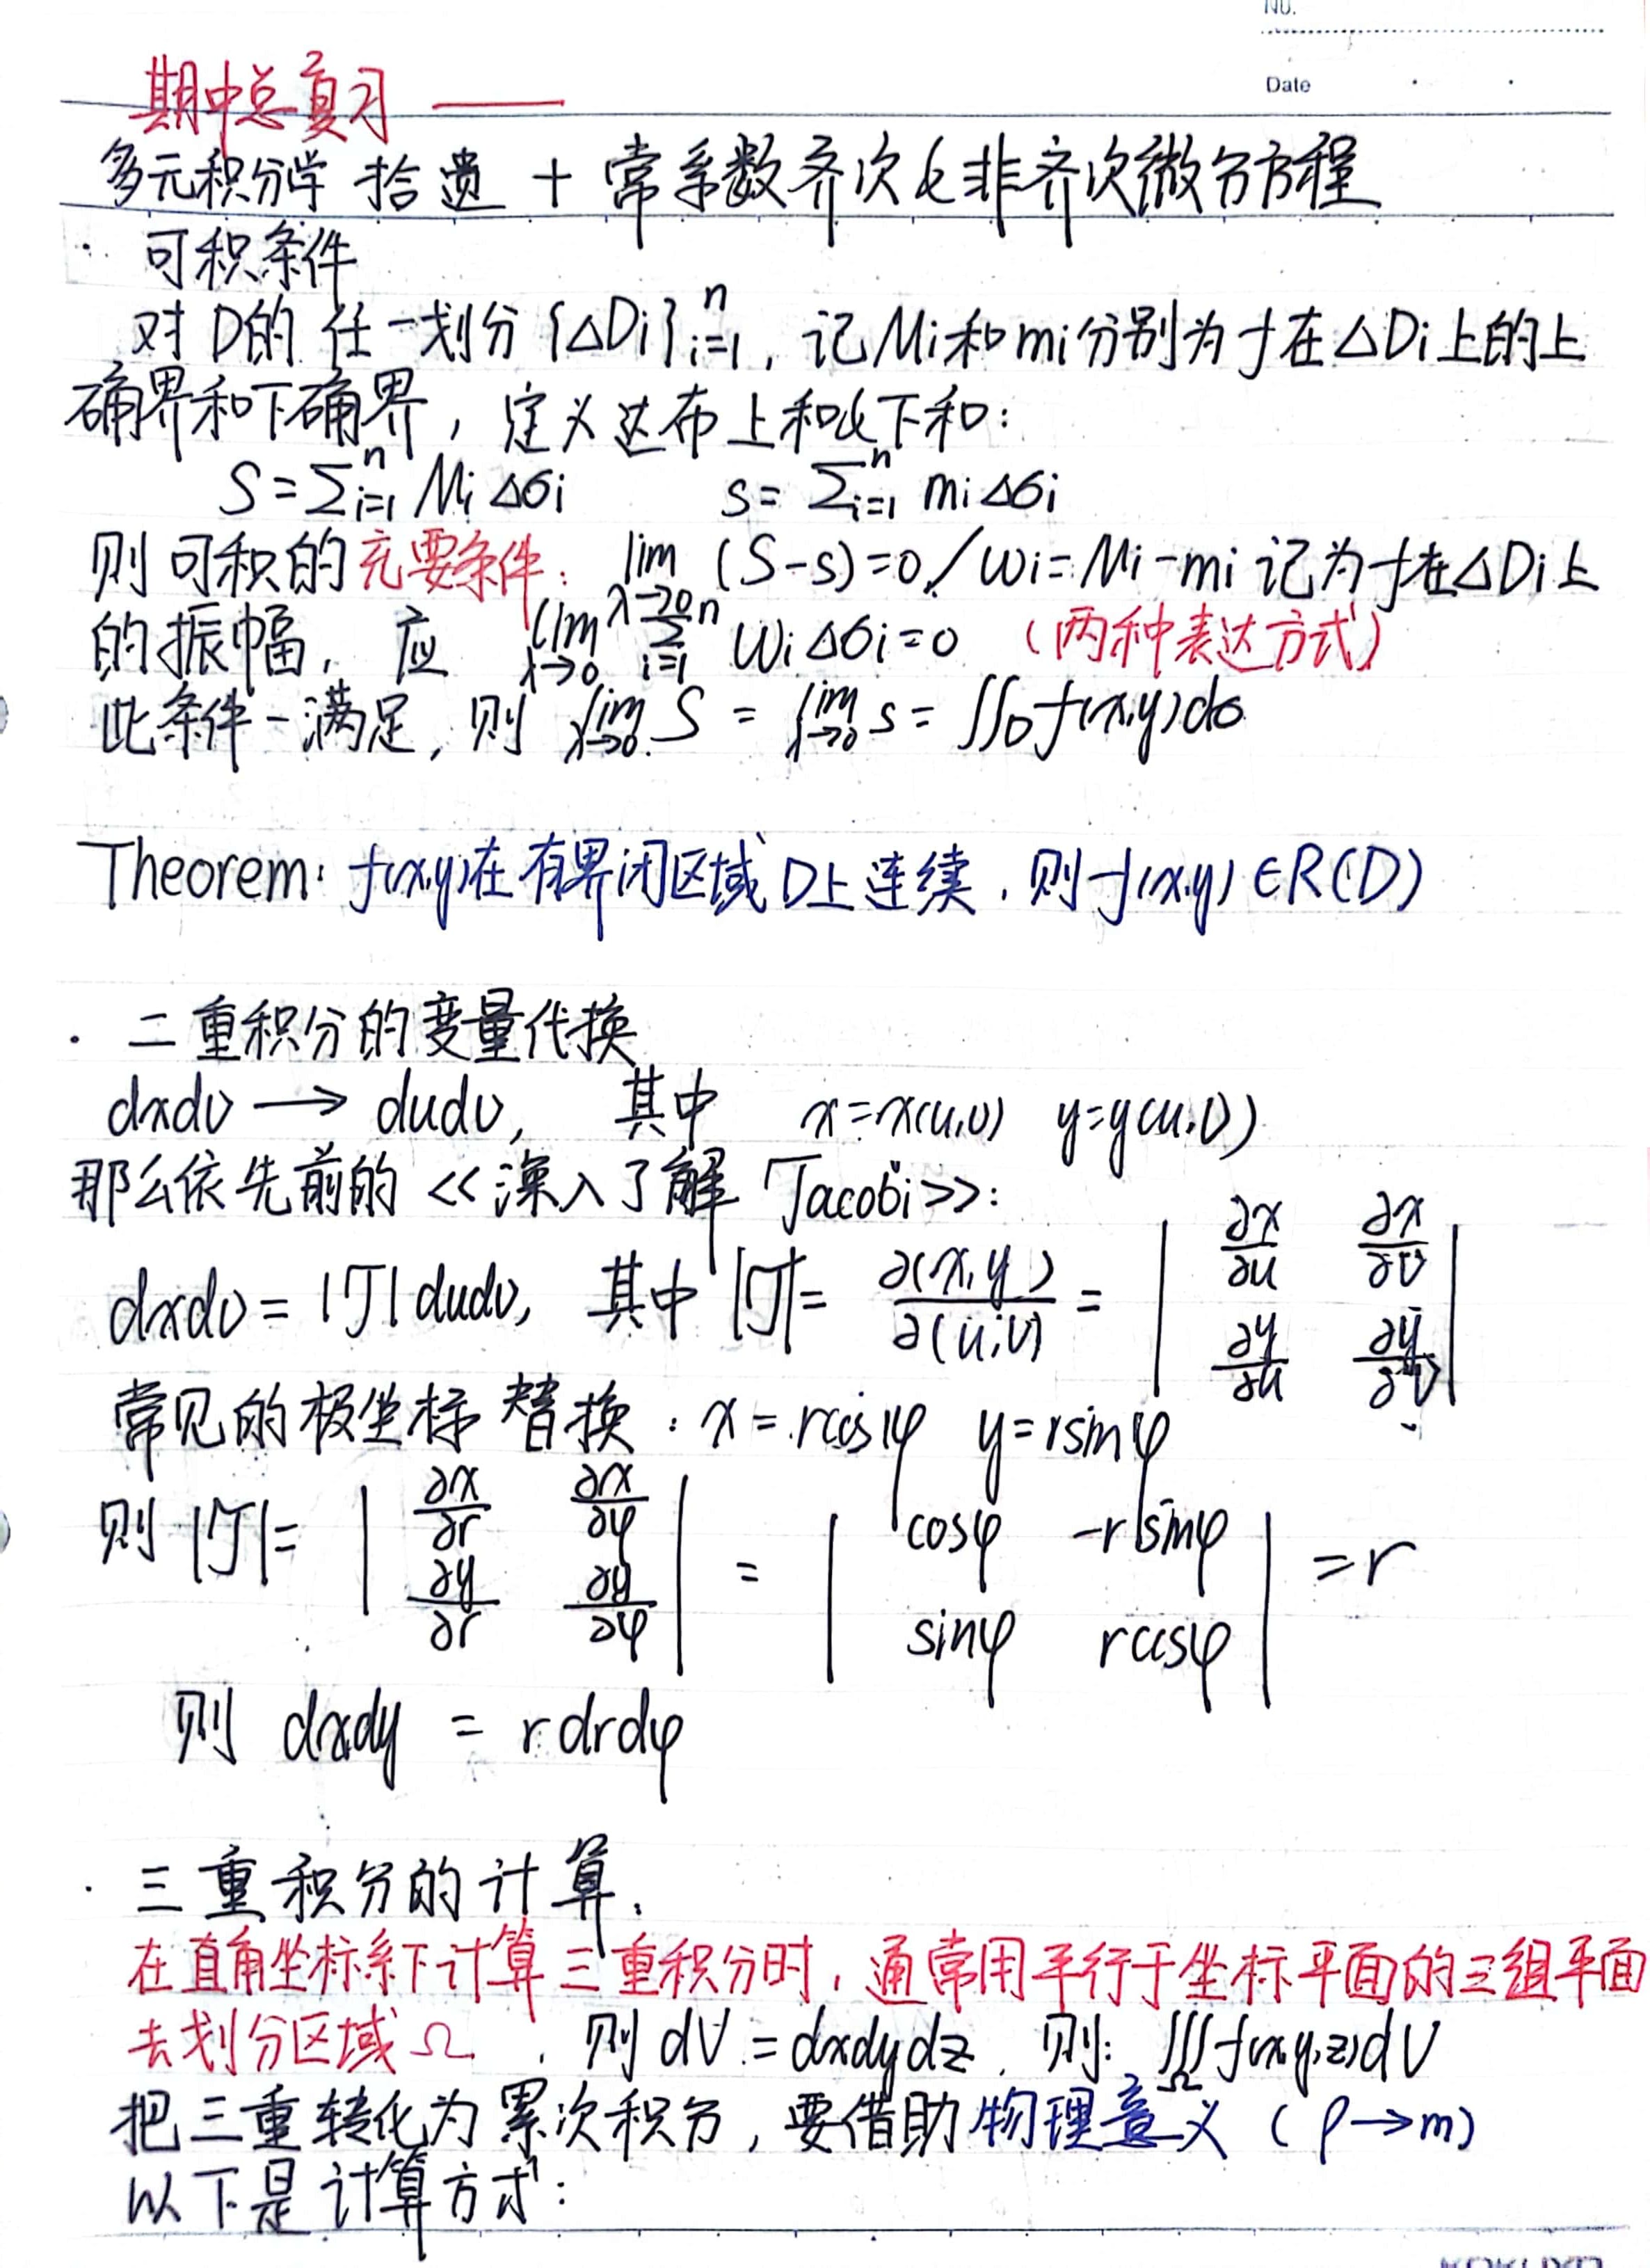 NO.
Date
期中总复习 ——
多元积分学 拾遗 + 常系数齐次&非齐次微分方程
· 可积条件
对 D的 任一划分 {△Di}ⁿᵢ₌₁, 记Mi和mi分别为f在△Di上的上
确界和下确界, 定义达布上和&下和:
S=∑ⁿᵢ₌₁ Mi△σi  s=∑ⁿᵢ₌₁ mi△σi
则可积的充要条件: lim_{λ→0} (S-s)=0 / ωi=Mi-mi 记为f在△Di上
的振幅, 应 lim_{λ→0} ∑ⁿᵢ₌₁ ωi△σi=0 (两种表达方式)
此条件一满足, 则 lim_{λ→0} S = lim_{λ→0} s = ∬_D f(x,y)dσ
Theorem: f(x,y)在有界闭区域D上连续, 则f(x,y)∈R(D)
· 二重积分的变量代换
dxdv → dudv, 其中 x=x(u,v) y=y(u,v)
那么依先前的 <<深入了解 Jacobi>>:
dxdv = |J|dudv, 其中|J|= ∂(x,y)/∂(u,v) = | ∂x/∂u ∂x/∂v ; ∂y/∂u ∂y/∂v |
常见的极坐标替换: x=rcosφ y=rsinφ
则 |J|= | ∂x/∂r ∂x/∂φ ; ∂y/∂r ∂y/∂φ | = | cosφ -rsinφ ; sinφ rcosφ | =r
则 dxdy = rdrdφ
· 三重积分的计算.
在直角坐标系下计算三重积分时, 通常用平行于坐标平面的三组平面
去划分区域Ω, 则dV=dxdydz. 则: ∭_Ω f(x,y,z)dV
把三重转化为累次积分, 要借助物理意义 (ρ→m)
以下是计算方式: